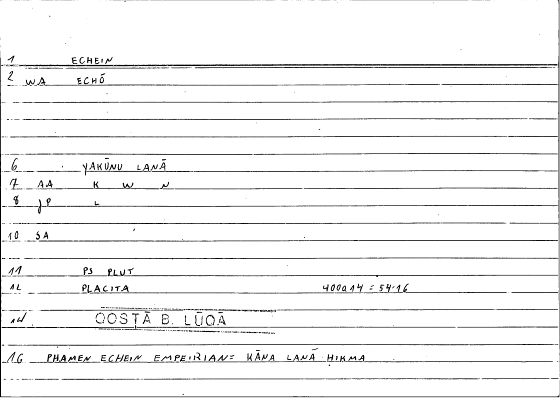 1 ECHEIN
2 WA ECHŌ
6 YAKŪNU LANĀ
7 AA K W N
8 JP L
10 SA
11 PS PLUT
12 PLACITA 400a14 = 54.16
14 QOSṬĀ B. LŪQĀ
16 PHAMEN ECHEIN EMPEIRIAN = KĀNA LANĀ HIKMA